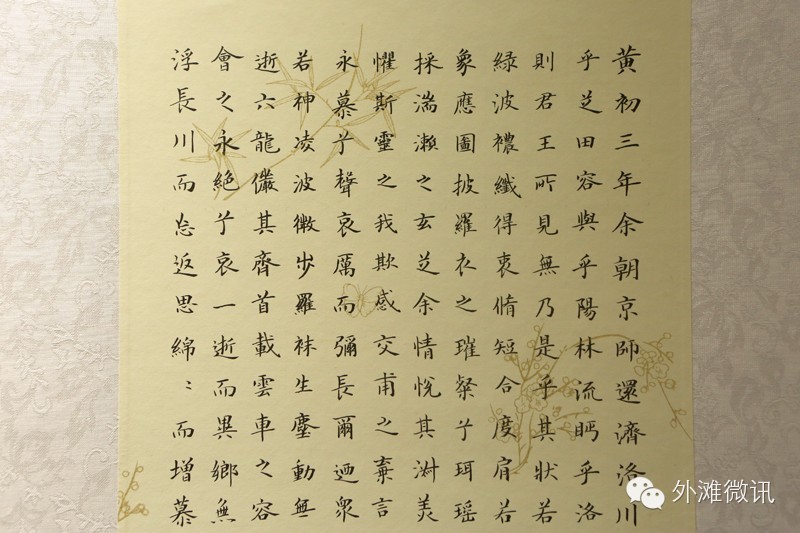 黃初三年余朝京師還濟洛川
乎芝田容與乎陽林流眄乎洛
則君王所見無乃是乎其狀若
綠波襛纖得衷脩短合度肩若
象應圖披羅衣之璀粲兮珥瑤
採湍瀨之玄芝余情悅其淑美
懼斯靈之我欺感交甫之棄言
永慕兮聲哀厲而彌長爾迺眾
若神凌波微步羅袜生塵動無
逝六龍儼其齊首載雲車之容
會之永絕兮哀一逝而異鄉無
浮長川而忘返思綿〻而增慕
外滩微讯